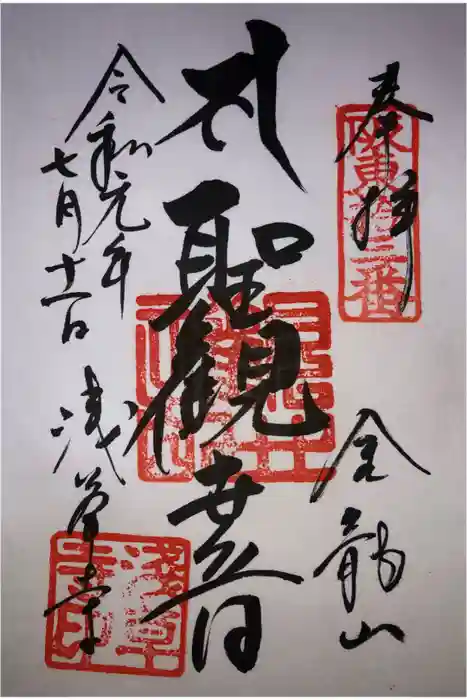 奉拝
坂東拾三番
金龍山
聖観世音
令和元年
七月十一日
浅草寺